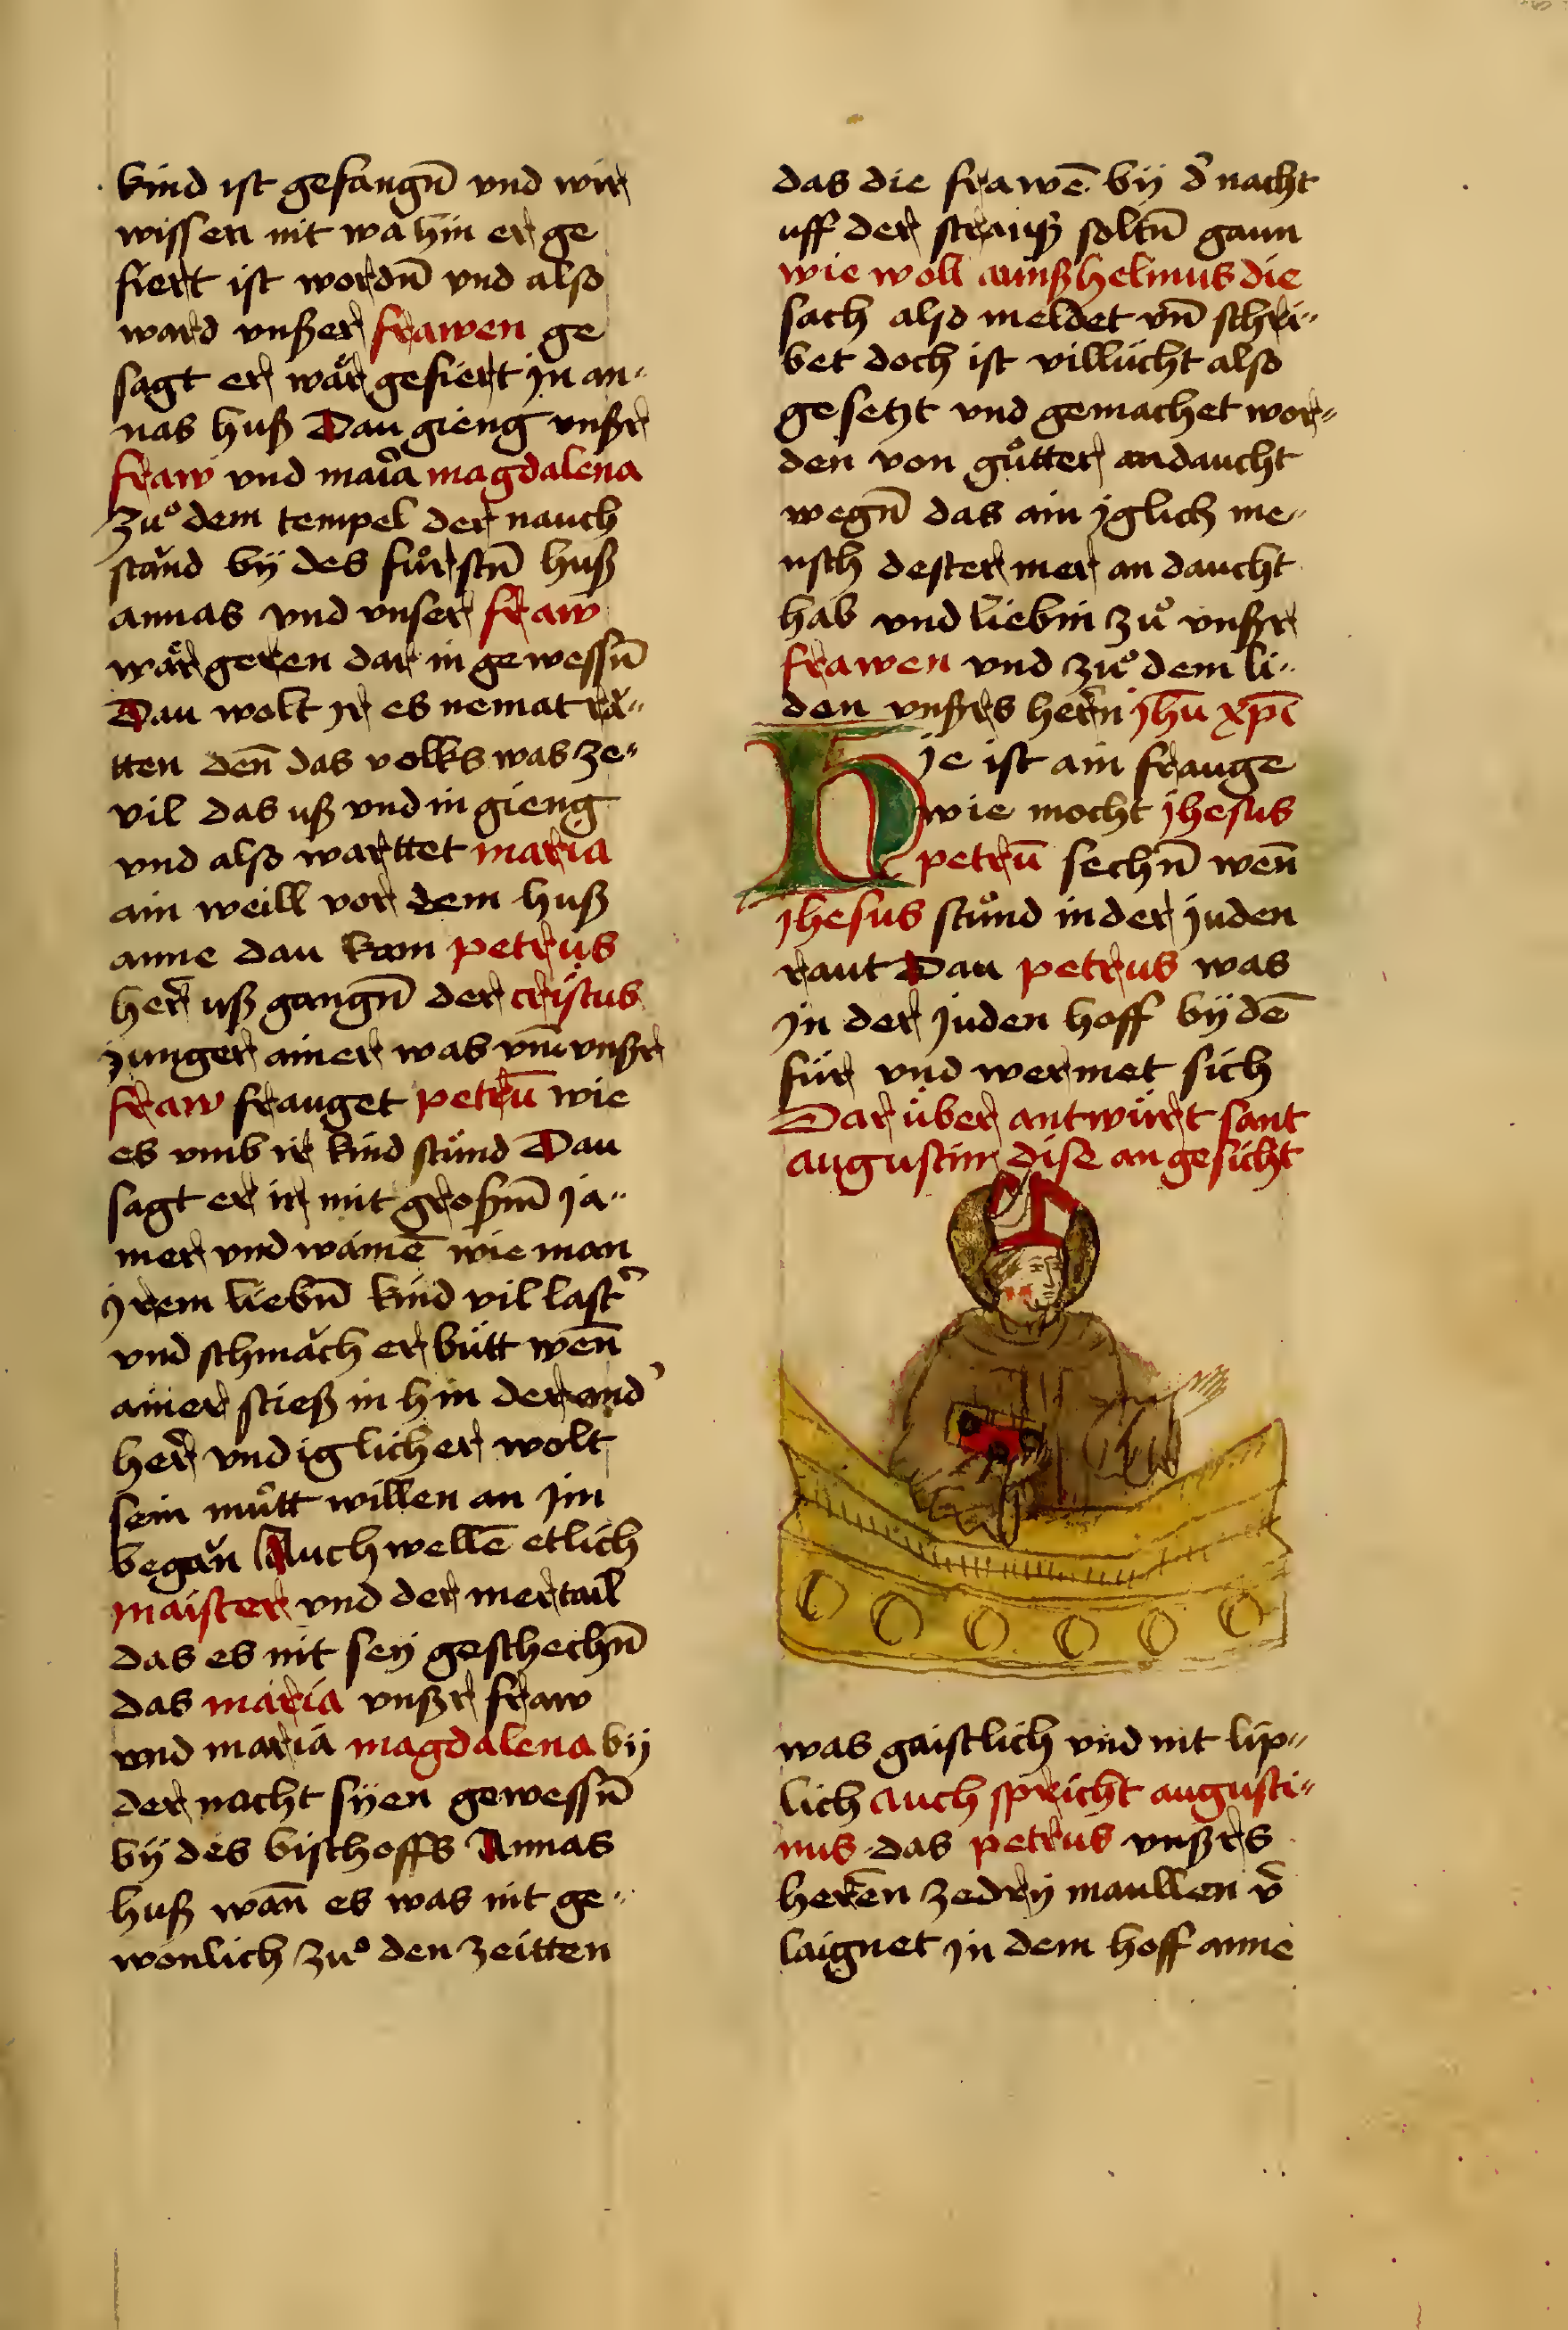 kind ist gefangn̄ vnd wir
wissen nit wa hin er ge
fiert ist wordn̄ vnd also
ward vnßer frawen ge
sagt er wår gefiert jn an-
nas huß Dau gieng vnßr
fraw vnd maria magdalena
zuͦ dem tempel der nauch
staud by des fuͦrstn̄ huß
annas vnd vnser fraw
wår geren dar in gewessn̄
Dau wolt jr es nemat ra-
tten den̄ das volks was ze-
vil das uß vnd in gieng
vnd also warttet maria
ain weill vor dem huß
anne dau kam petrus
her̄ uß gangn̄ der cristus
junger ainer was vn̄ vnßr
fraw frauget petrū wie
es vmb ir kind stuͦnd Dau
sagt er ir mit großm̄ ja-
mer vnd wainē wie man
jrem liebn̄ kind vil last̉
vnd schmach erbütt wen̄
ainer stieß in hin der and̉
her̄ vnd iglicher wolt
sein muͦtt willen an jm
began Auch wellē etlich
maister vnd der mertail
das es nit sey geschechn̄
das maria vnßr fraw
vnd maria magdalena by
der nacht syen gewessn̄
by des bischoffs Annas
huß wan̄ es was nit ge-
wonlich zuͦ den zeitten
das die frawē by d̉ nacht
uff der strauß soltn̄ gaun
wie woll annßhelmus die
sach also meldet vn̄ schri-
bet doch ist villücht also
gesetzt vnd gemachet wor-
den von guͦtter andaucht
wegn̄ das ain jglich me-
nsch dester mer an daucht
hab vnd liebin zuͦ vnßr
frawen vnd zuͦ dem li-
den vnßrs hern̄ jhū xp̄i
Hie ist ain frauge
wie mocht jhesus
petrū sechn̄ wen̄
jhesus stuͦnd in der juden
raut Dau petrus was
jn der juden hoff by dē
für vnd wermet sich
Dar über antwürt sant
augustin dise angesicht
was gaistlich vnd nit lip-
lich auch spricht augusti-
nus das petrus vnßrs
herēn zedry maullen v̉
laignet jn dem hoff anne